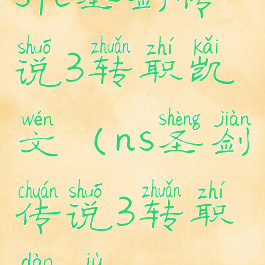 shuō zhuǎn zhí kǎi
说3转职凯
wén shèng jiàn
文（ns圣剑
chuán shuō zhuǎn zhí
传说3转职
dào jù